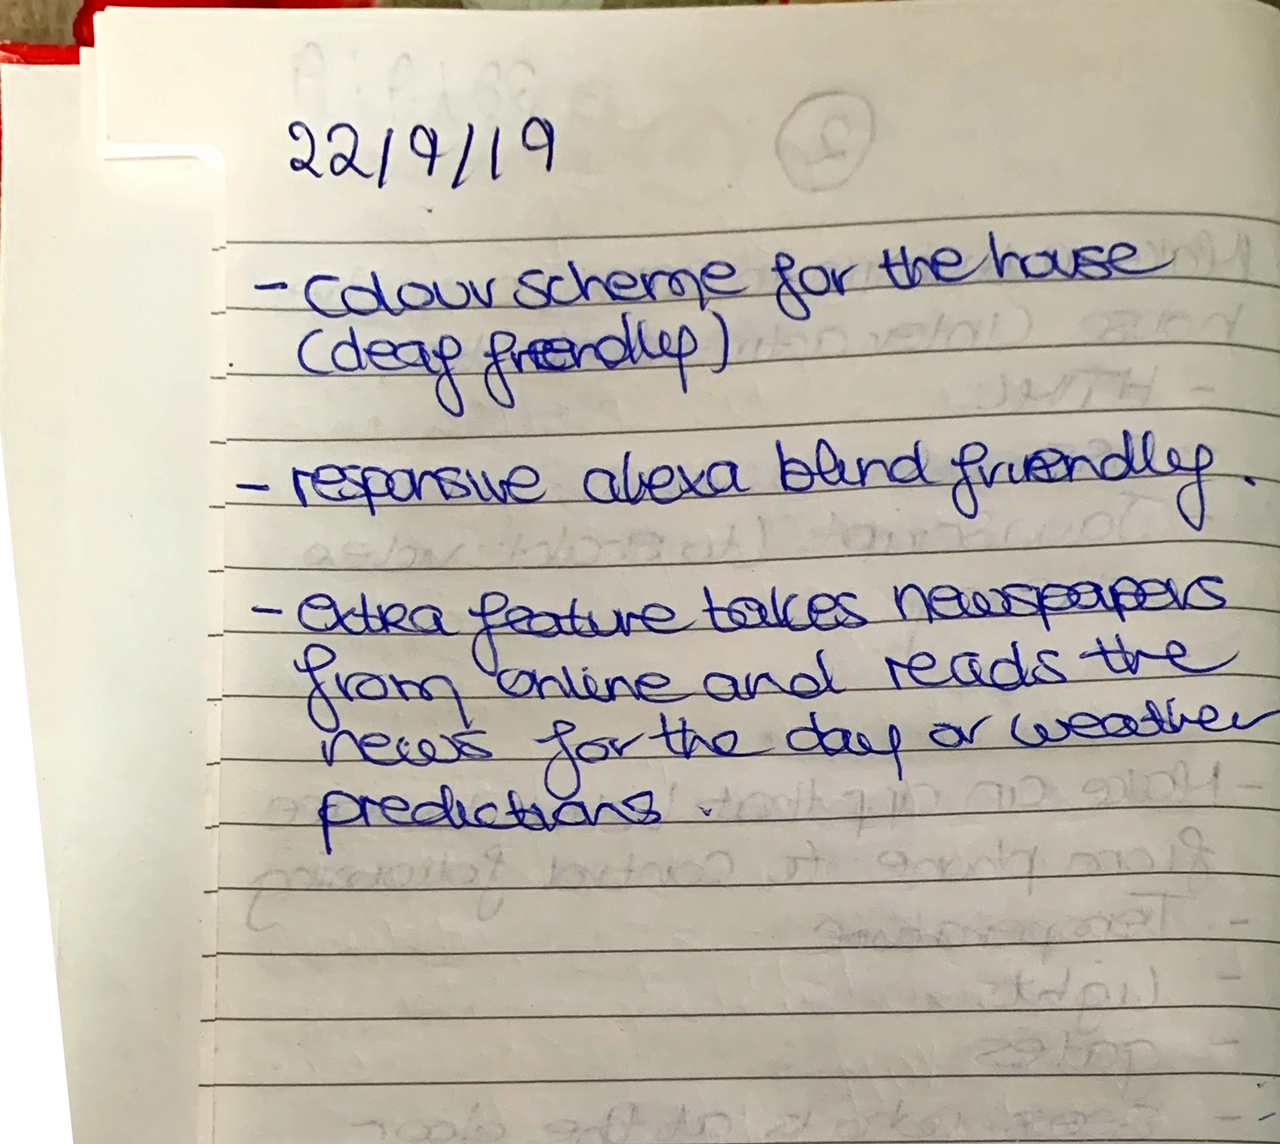 22/9/19
- Colour scheme for the house
(deaf friendly)
- responsive alexa blind friendly.
- extra feature takes newspapers
from online and reads the
news for the day or weather
predictions.